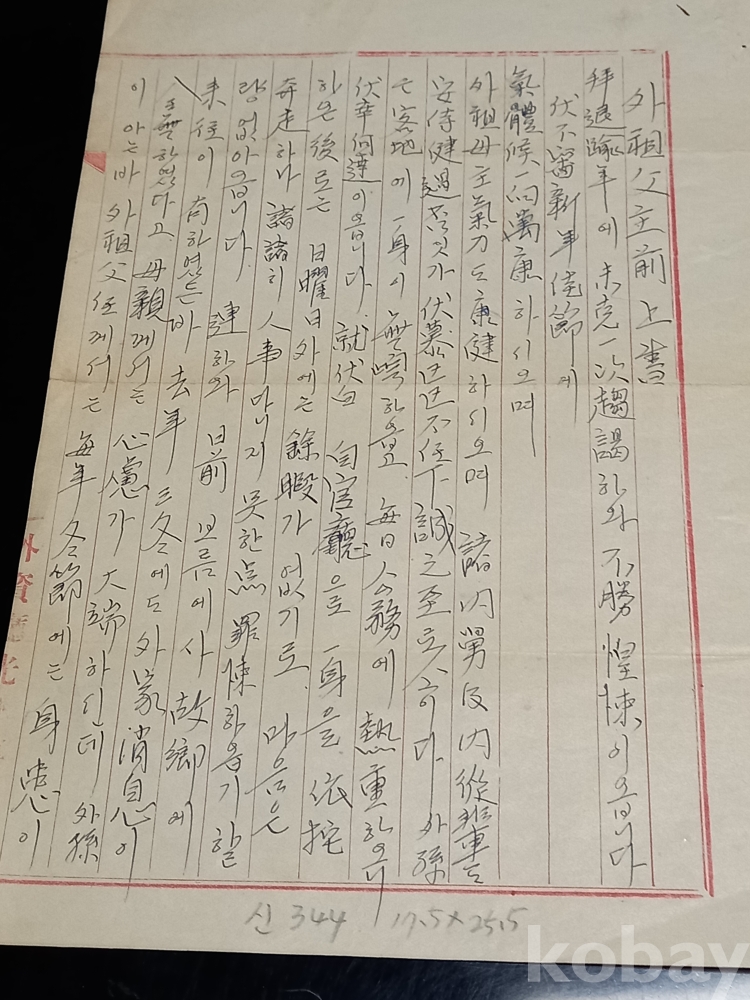 外祖父主前上書
拜退踰年에 未克一次趨謁하와 不勝惶悚이옵니다
伏不審新年佳節에
氣體候一向萬康하시오며
外祖母主氣力도 康健하시오며 諸內舅及內從輩도
安侍健過 伏慕區區不任下誠之至로소이다 外孫
은 客地에 一身이 無 하옵고 每日公務에 熱重하오니
伏幸何達이옵니다 就伏白 自官廳으로 一身을 依托
하온後로는 日曜日外에는 餘暇가 없기로 마음은
奔走하나 諸諸히 人事 다니지 못한点 罪悚하옵기 할
량없아옵니다 日前 보름에사 故鄕에
來往이 有하였든바 去年 三冬에도 外家消息이
하였다고 母親께서는 心慮가 大端하신데 外孫
이 아는바 外祖父任께서는 每年冬節에는 身患이
신344 17.5×25.5
kobay